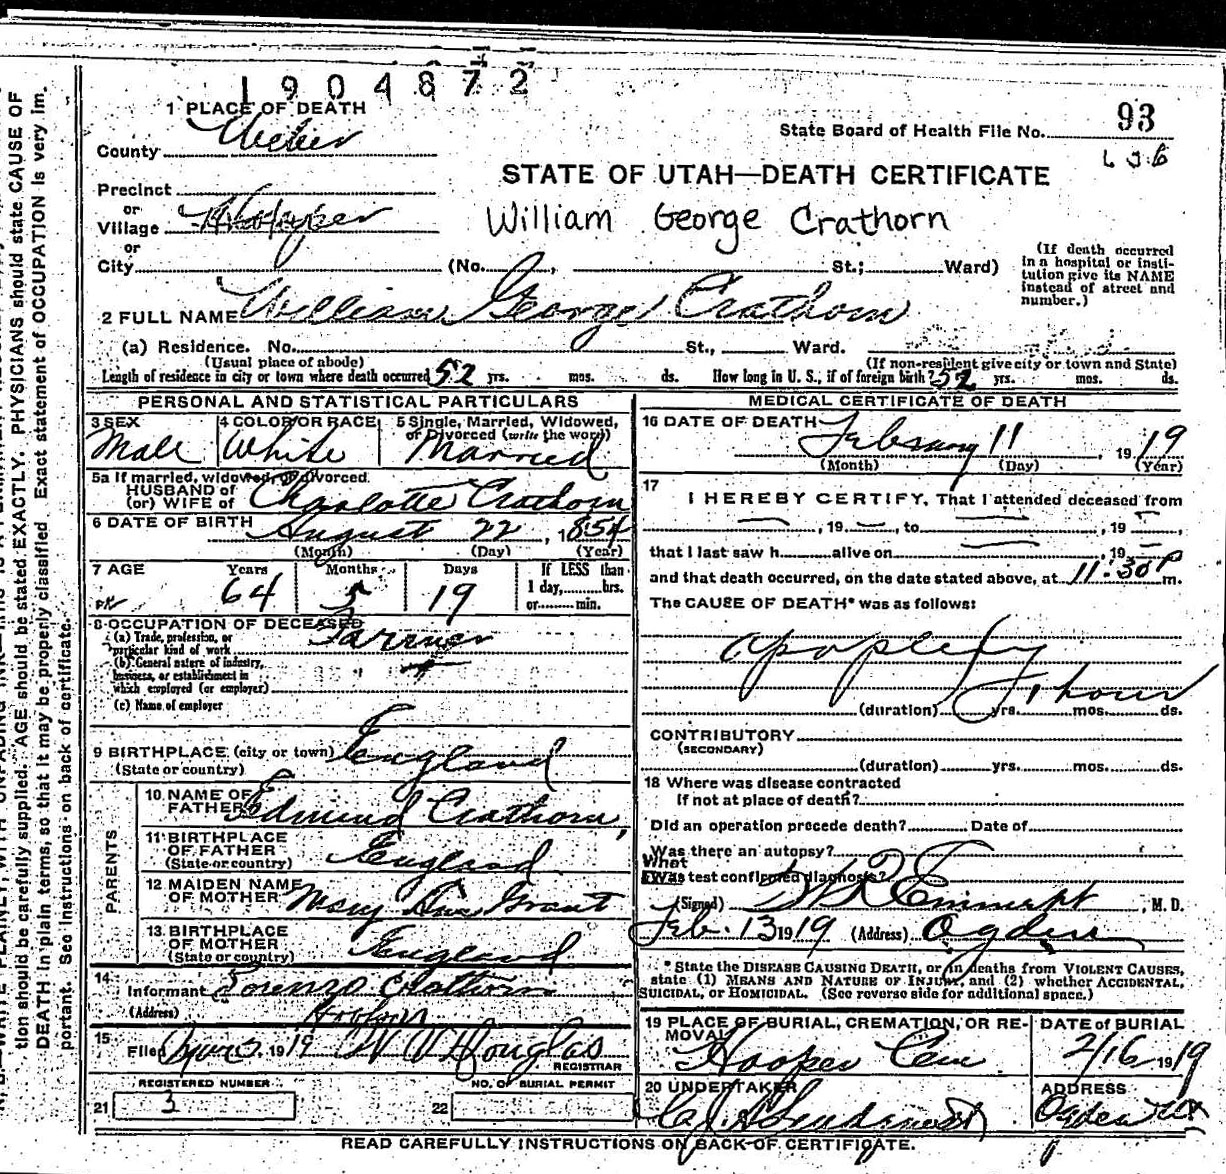 1904872
1 PLACE OF DEATH
County Weber
State Board of Health File No. 93
Precinct
or
Village Hooper
or
City (No. , St.; Ward)
STATE OF UTAH—DEATH CERTIFICATE
William George Crathorn
(If death occurred in a hospital or institution give its NAME instead of street and number.)
2 FULL NAME William George Crathorn
(a) Residence. No. St., Ward.
(Usual place of abode) (If non-resident give city or town and State)
Length of residence in city or town where death occurred 52 yrs. mos. ds. How long in U. S., if of foreign birth? 52 yrs. mos. ds.
PERSONAL AND STATISTICAL PARTICULARS
3 SEX Male
4 COLOR OR RACE White
5 Single, Married, Widowed, or Divorced (write the word) Married
5a If married, widowed, or divorced.
HUSBAND of
(or) WIFE of Charlotte Crathorn
6 DATE OF BIRTH August 22, 1854
(Month) (Day) (Year)
7 AGE Years 64 Months 5 Days 19 If LESS than 1 day, hrs. or min.
8 OCCUPATION OF DECEASED
(a) Trade, profession, or particular kind of work Farmer
(b) General nature of industry, business, or establishment in which employed (or employer)
(c) Name of employer
9 BIRTHPLACE (city or town) England
(State or country)
PARENTS
10 NAME OF FATHER Edmund Crathorn,
11 BIRTHPLACE OF FATHER England
(State or country)
12 MAIDEN NAME OF MOTHER Mary Ann Grant
13 BIRTHPLACE OF MOTHER England
(State or country)
14
Informant Lorenzo Crathorn
(Address)
15
Filed 1919 W V Douglas
REGISTRAR
REGISTERED NUMBER
21 3
NO. OF BURIAL PERMIT
22
MEDICAL CERTIFICATE OF DEATH
16 DATE OF DEATH February 11, 1919
(Month) (Day) (Year)
17
I HEREBY CERTIFY, That I attended deceased from
, 19 , to , 19
that I last saw h alive on , 19
and that death occurred, on the date stated above, at 11:30 P m.
The CAUSE OF DEATH* was as follows:
apoplexy
1 hour
(duration) yrs. mos. ds.
CONTRIBUTORY
(SECONDARY)
(duration) yrs. mos. ds.
18 Where was disease contracted
If not at place of death?
Did an operation precede death? Date of
Was there an autopsy?
What test confirmed diagnosis?
(Signed) Emmett, M. D.
Feb. 13 1919 (Address) Ogden
* State the DISEASE CAUSING DEATH, or in deaths from VIOLENT CAUSES, state (1) MEANS AND NATURE OF INJURY, and (2) whether ACCIDENTAL, SUICIDAL, or HOMICIDAL. (See reverse side for additional space.)
19 PLACE OF BURIAL, CREMATION, OR REMOVAL Hooper Cem
DATE OF BURIAL 2/16 1919
20 UNDERTAKER
ADDRESS Ogden Ut
READ CAREFULLY INSTRUCTIONS ON BACK OF CERTIFICATE.
tion should be carefully supplied. AGE should be stated EXACTLY. PHYSICIANS should state CAUSE OF
DEATH in plain terms, so that it may be properly classified. Exact statement of OCCUPATION is very im-
portant. See instructions on back of certificate.